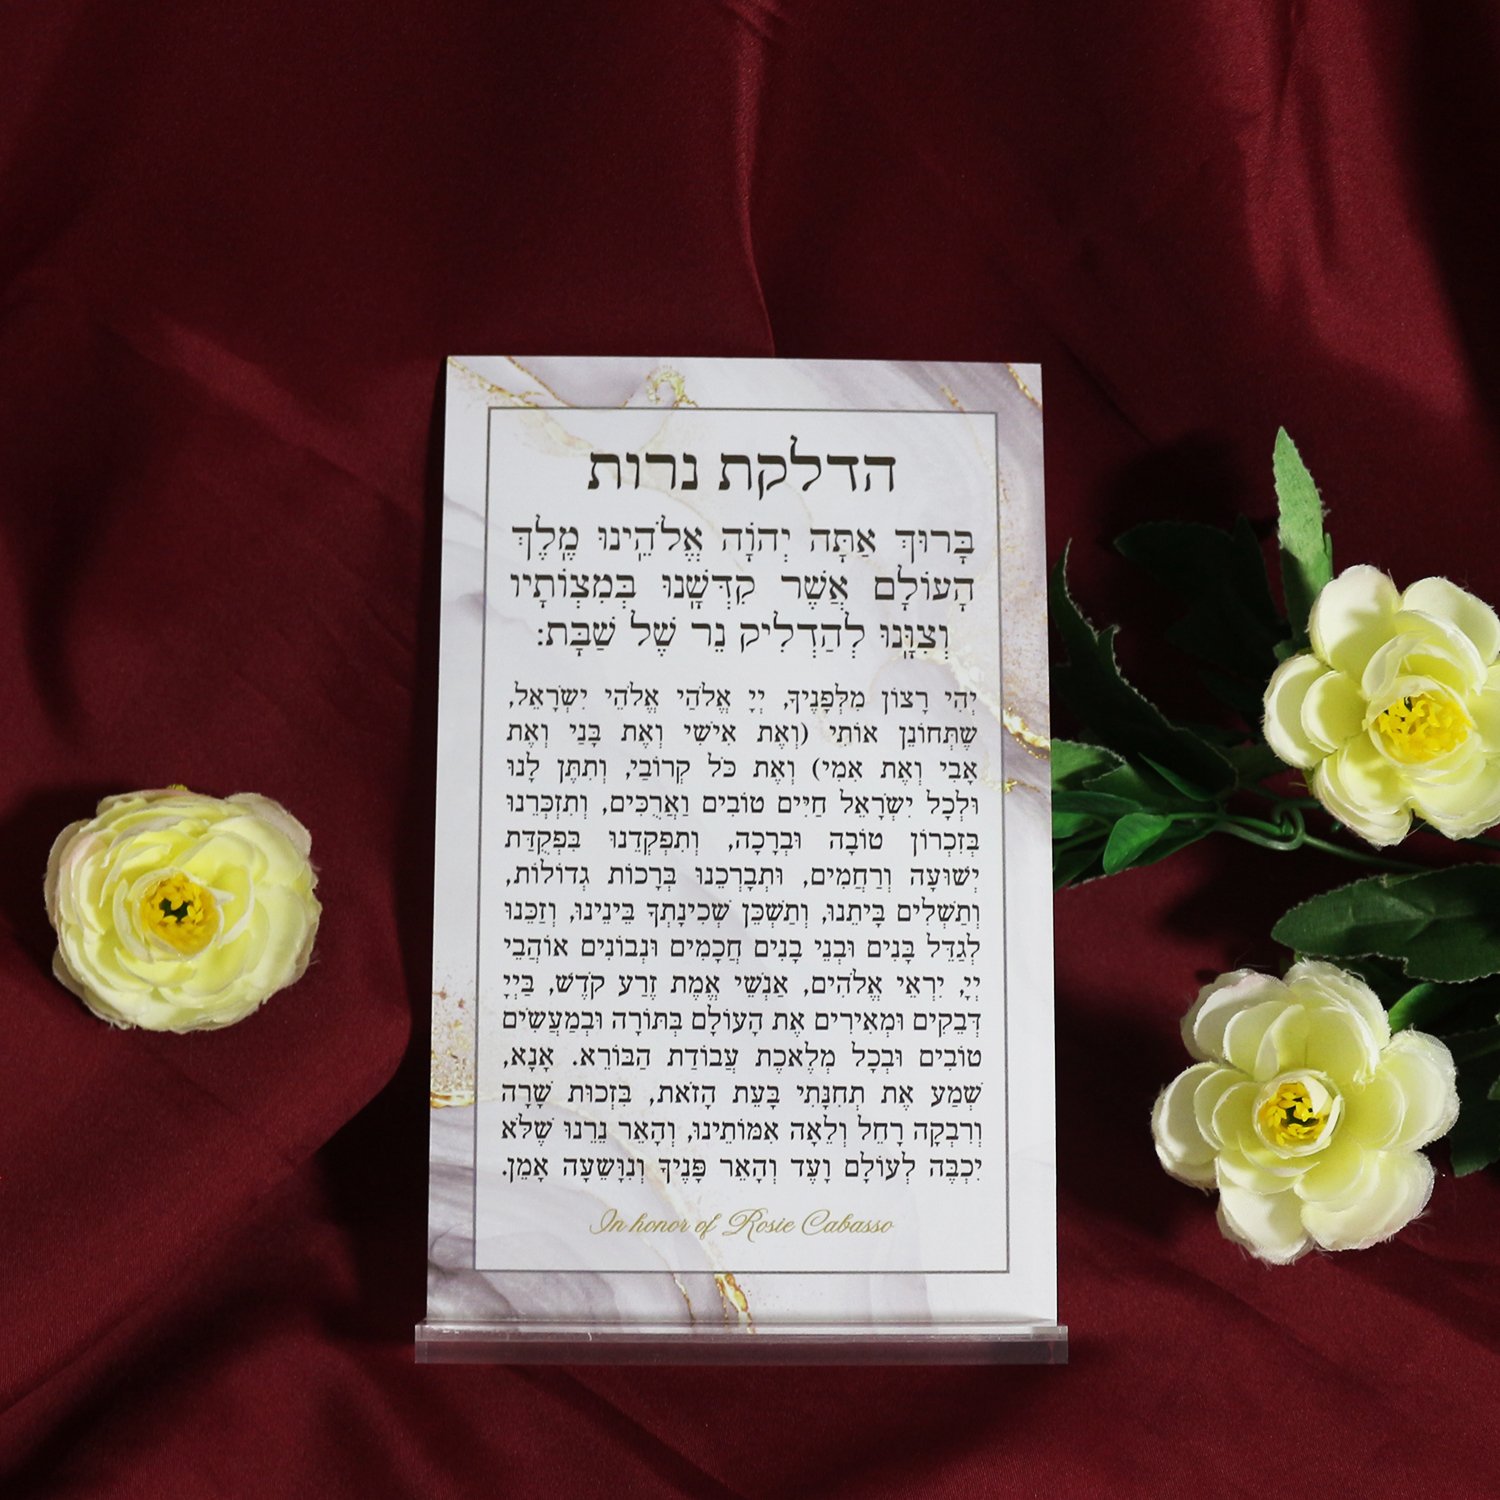 הדלקת נרות
בָּרוּךְ אַתָּה יְהֹוָה אֱלֹהֵינוּ מֶלֶךְ
הָעוֹלָם אֲשֶׁר קִדְּשָׁנוּ בְּמִצְוֹתָיו
וְצִוָּנוּ לְהַדְלִיק נֵר שֶׁל שַׁבָּת:
יְהִי רָצוֹן מִלְּפָנֶיךָ, יְיָ אֱלֹהַי אֱלֹהֵי יִשְׂרָאֵל,
שֶׁתְּחוֹנֵן אוֹתִי (וְאֶת אִישִׁי וְאֶת בָּנַי וְאֶת
אָבִי וְאֶת אִמִּי) וְאֶת כֹּל קְרוֹבַי, וְתִתֶּן לָנוּ
וּלְכָל יִשְׂרָאֵל חַיִּים טוֹבִים וַאֲרֻכִּים, וְתִזְכְּרֵנוּ
בְּזִכְרוֹן טוֹבָה וּבְרָכָה, וְתִפְקְדֵנוּ בִּפְקֻדַּת
יְשׁוּעָה וְרַחֲמִים, וּתְבָרְכֵנוּ בְּרָכוֹת גְּדוֹלוֹת,
וְתַשְׁלִים בָּיתֵנוּ, וְתַשְׁכֵּן שְׁכִינָתְךָ בֵּינֵינוּ, וְזַכֵּנוּ
לְגַדֵּל בָּנִים וּבְנֵי בָנִים חֲכָמִים וּנְבוֹנִים אוֹהֲבֵי
יְיָ, יִרְאֵי אֱלֹהִים, אַנְשֵׁי אֱמֶת זֶרַע קֹדֶשׁ, בַּיְיָ
דְּבֵקִים וּמְאִירִים אֶת הָעוֹלָם בְּתּוֹרָה וּבְמַעֲשִׂים
טוֹבִים וּבְכָל מְלֶאכֶת עֲבוֹדַת הַבּוֹרֵא. אָנָא,
שְׁמַע אֶת תְּחִנָּתִי בָּעֵת הַזֹּאת, בִּזְכוּת שָׂרָה
וְרִבְקָה רָחֵל וְלֵאָה אִמּוֹתֵינוּ, וְהָאֵר נֵרֵנוּ שֶׁלֹּא
יִכְבֶּה לְעוֹלָם וָעֶד וְהָאֵר פָּנֶיךָ וְנִוָּשֵׁעָה אָמֵן.
In honor of Rosie Cabasso